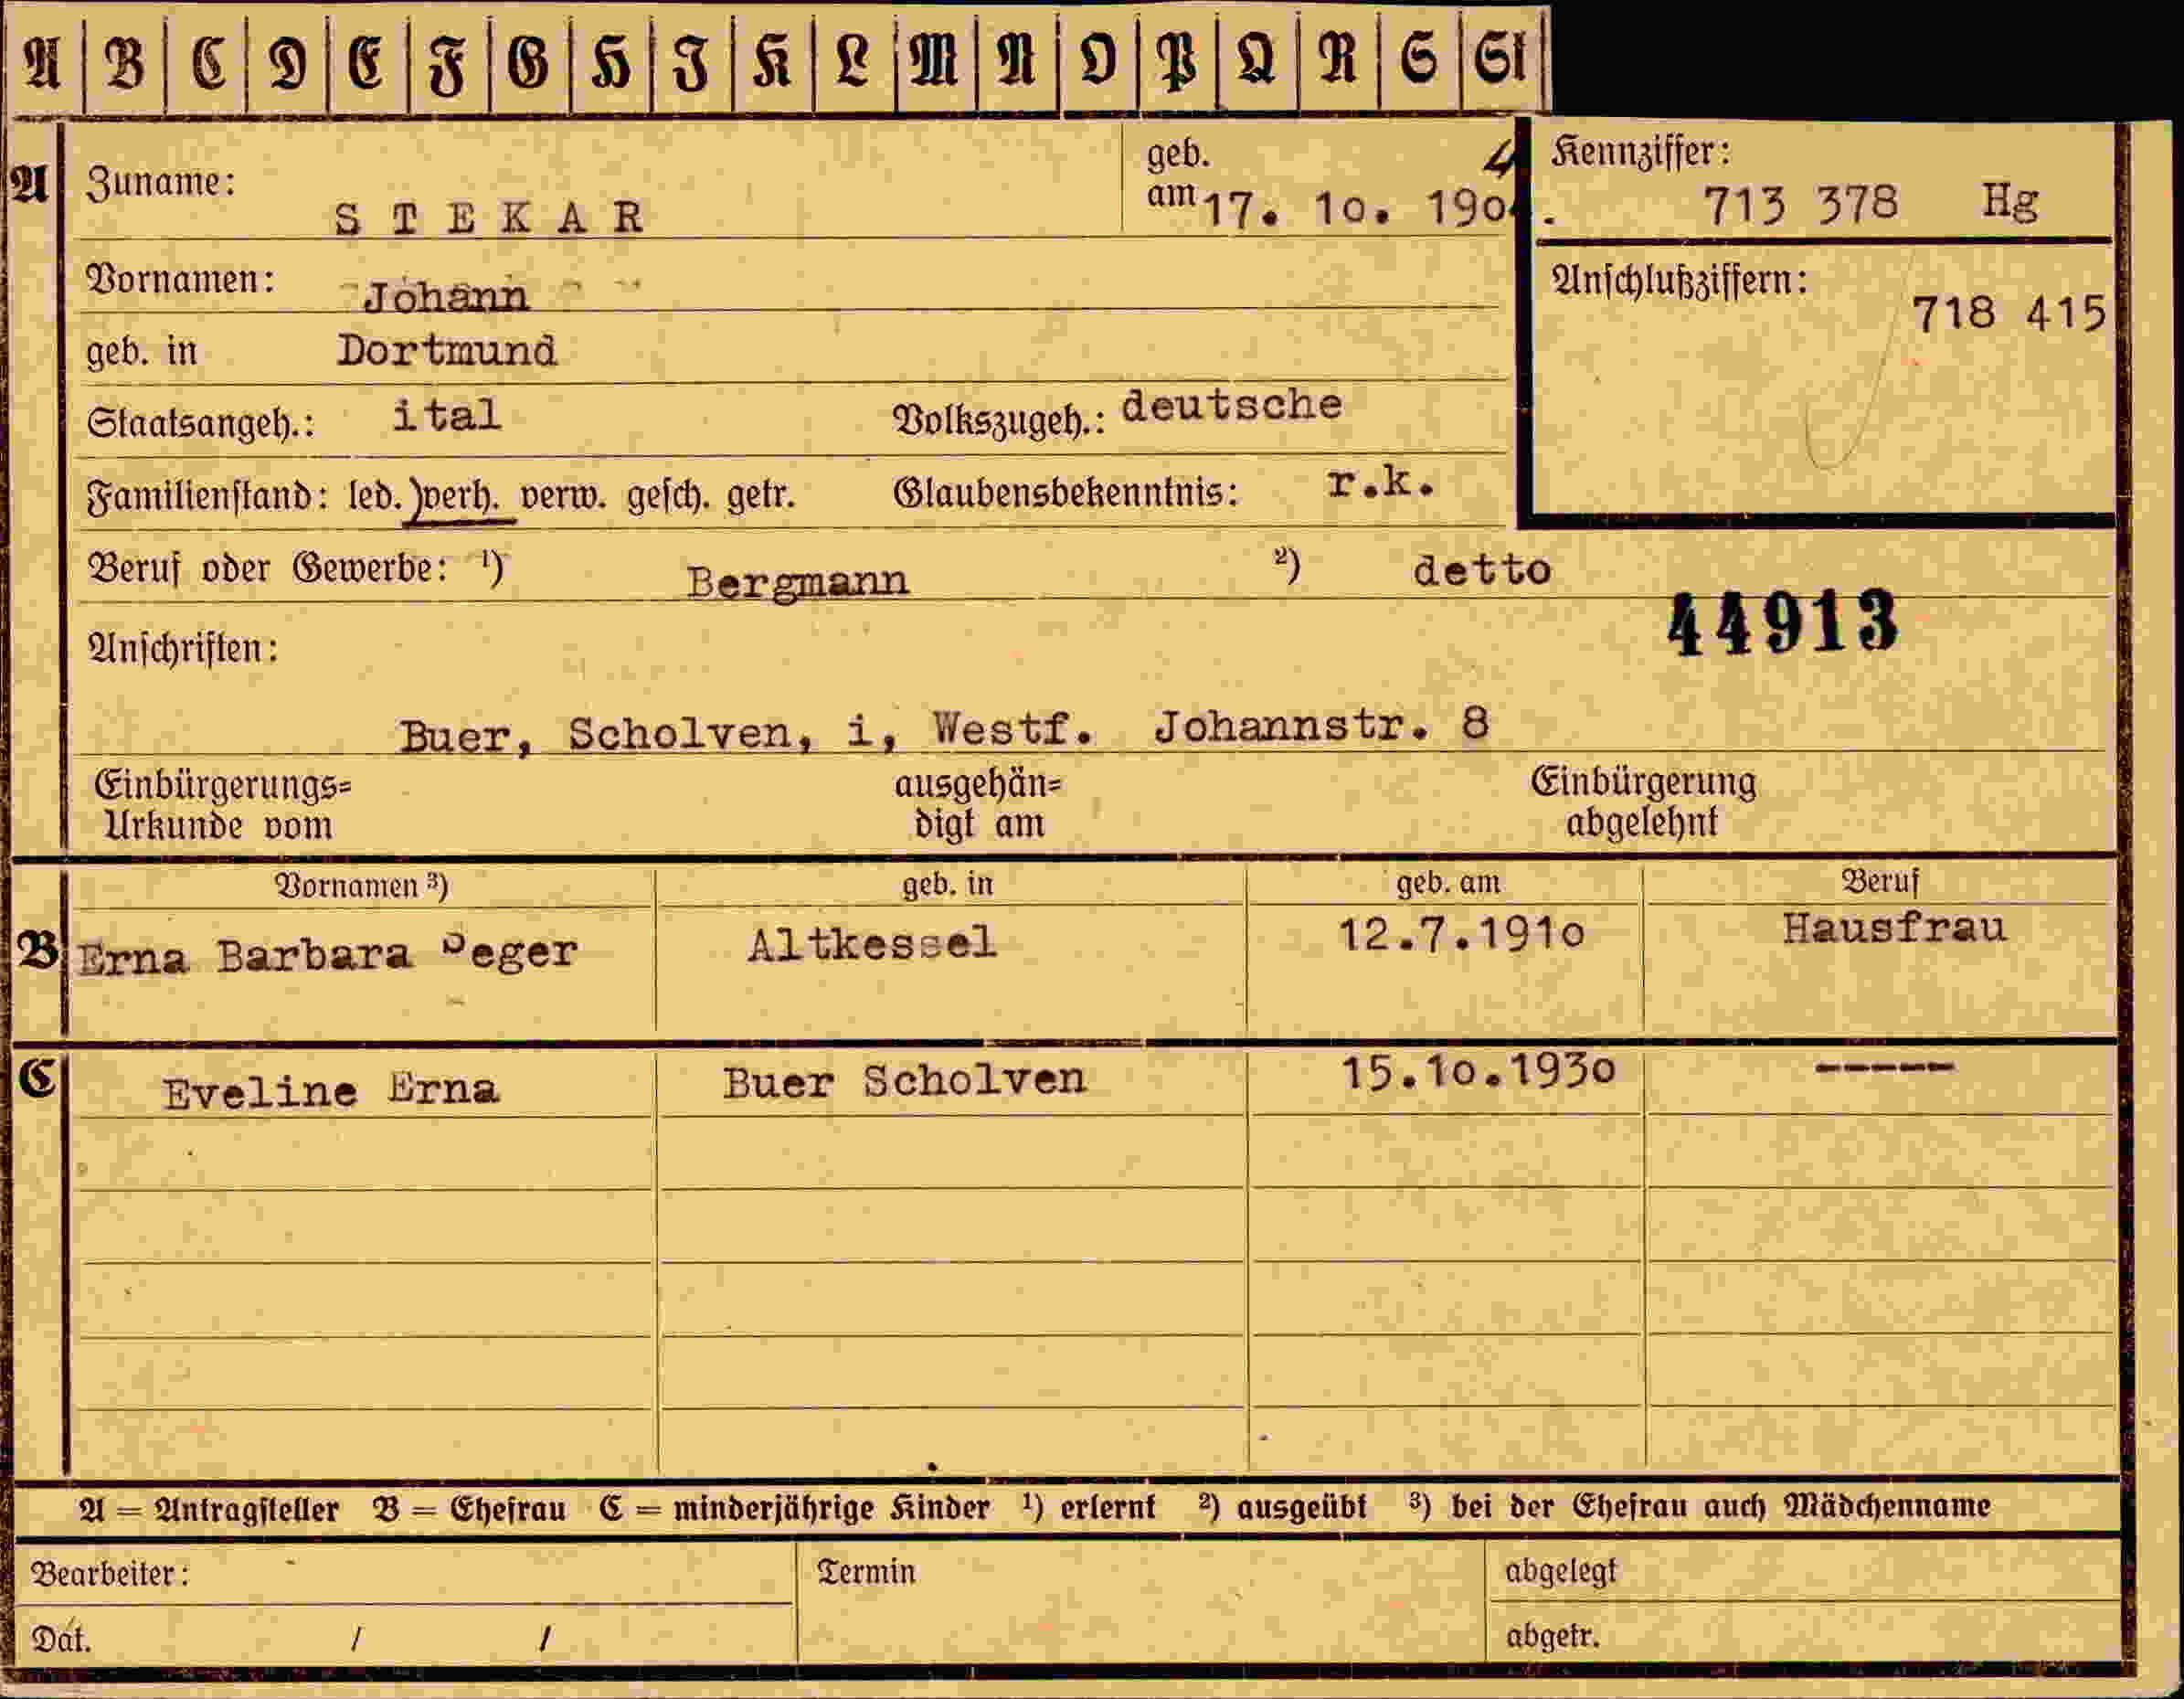 A B C D E F G H I K L M N O P Q R S St
A Zuname: S T E K A R geb. am 17. 10. 1904. Kennziffer: 713 378 Hg
Vornamen: Johann Anschlußziffern: 718 415
geb. in Dortmund
Staatsangeh.: ital Volkszugeh.: deutsche
Familienstand: led. )verh. verw. gesch. getr. Glaubensbekenntnis: r.k.
Beruf oder Gewerbe: ¹) Bergmann ²) detto
44913
Anschriften:
Buer, Scholven, i, Westf. Johannstr. 8
Einbürgerungs= Urkunde vom ausgehän= digt am Einbürgerung abgelehnt
Vornamen ³) geb. in geb. am Beruf
B Erna Barbara Altkessel 12.7.1910 Hausfrau
C Eveline Erna Buer Scholven 15.10.1930 -----
A = Antragsteller B = Ehefrau C = minderjährige Kinder ¹) erlernt ²) ausgeübt ³) bei der Ehefrau auch Mädchenname
Bearbeiter: Termin abgelegt
Dat. / / abgetr.